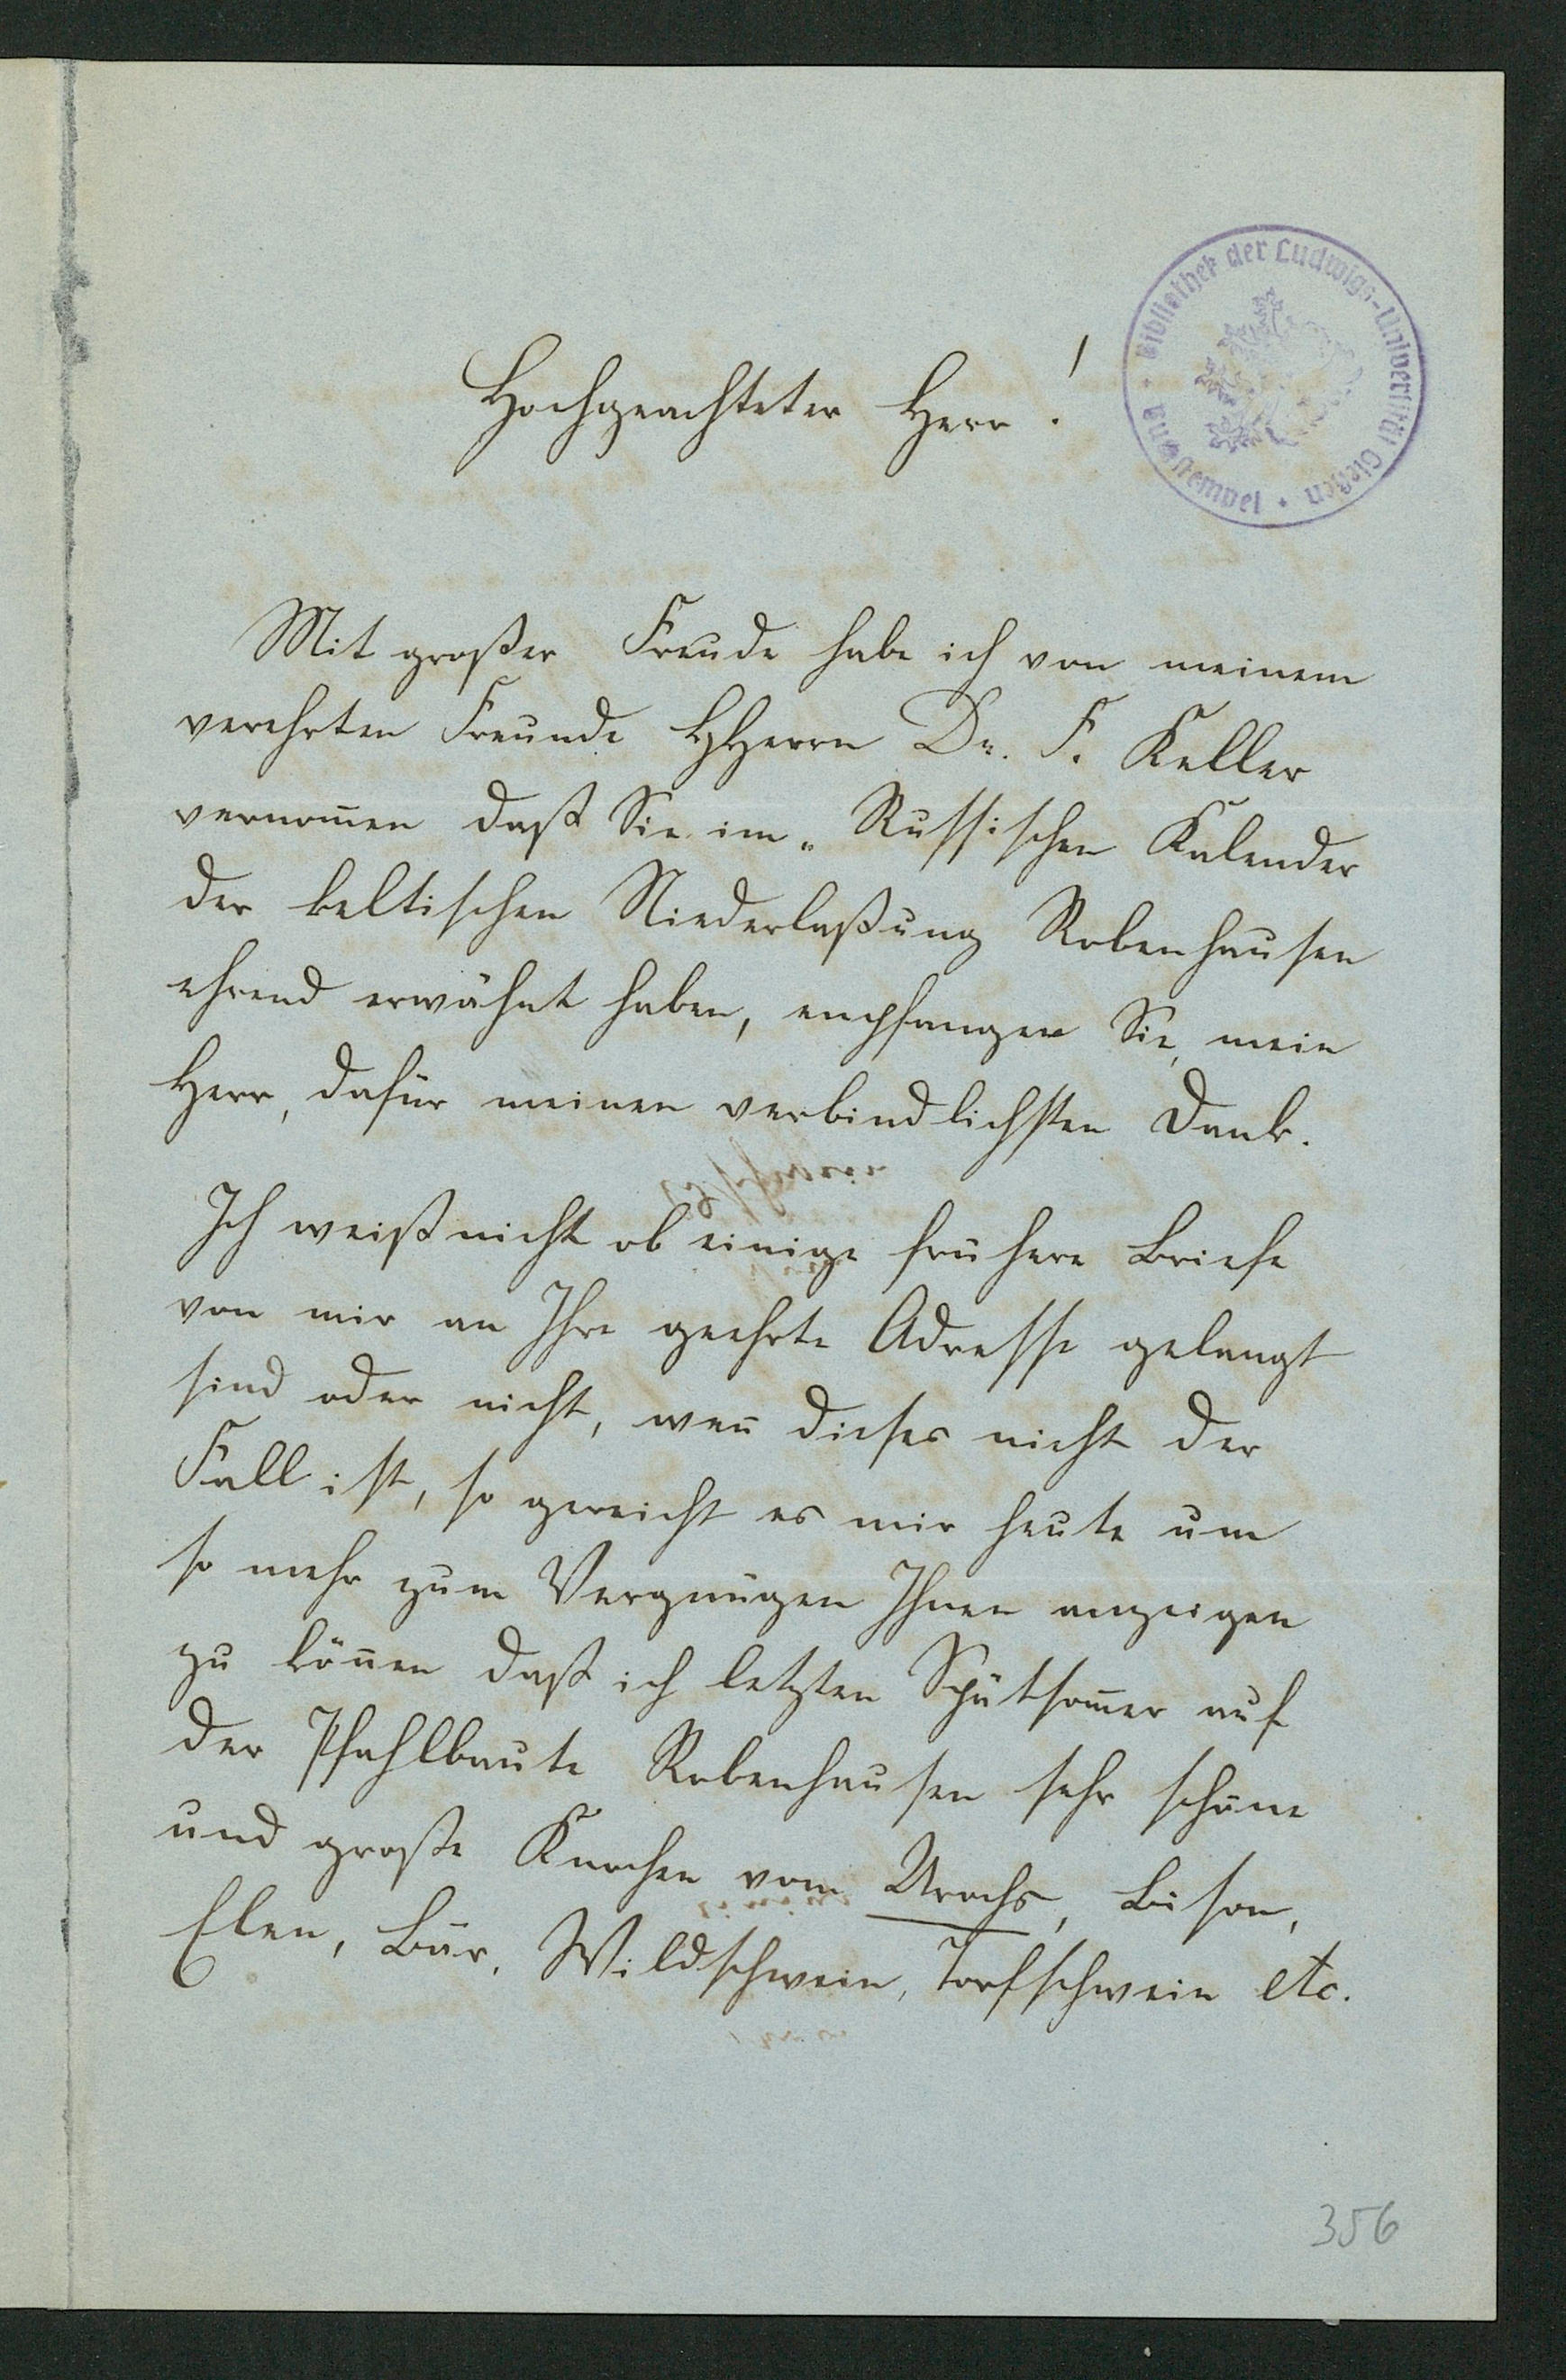 Bibliothek der Ludwigs-Universität Gießen
Hochgeachteter Herr!
Mit großer Freude habe ich von meinem
verehrten Freunde HHerrn Dr. F. Keller
vernom̄en daß Sie im „Russischen Kalender
der keltischen Niederlaßung Robenhausen
ehrend erwähnt haben, empfangen Sie, mein
Herr, dafür meinen verbindlichsten Dank.
Ich weiß nicht ob einige frühere Briefe
von mir an Ihre geehrte Adresse gelangt
sind oder nicht, wen̄ dieses nicht der
Fall ist, so gereicht es mir heute um
so mehr zum Vergnügen Ihnen anzeigen
zu kön̄en daß ich letzten Spätsom̄er auf
der Pfahlbaute Robenhausen sehr schöne
und große Knochen vom Urochs, Bison,
Elen, Bär, Wildschwein, Torfschwein etc.
356